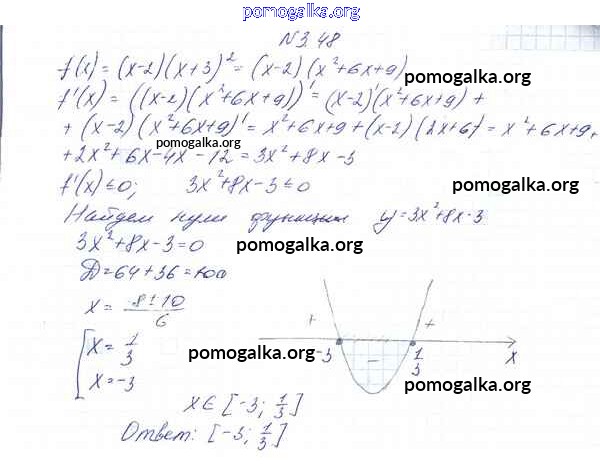 pomogalka.org
N 3.48
f(x) = (x-2)(x+3)² = (x-2)(x²+6x+9)
pomogalka.org
f'(x) = ((x-2)(x²+6x+9))' = (x-2)'(x²+6x+9) +
+ (x-2)(x²+6x+9)' = x²+6x+9+(x-2)(2x+6) = x²+6x+9+
pomogalka.org
+2x²+6x-4x-12=3x²+8x-3
f'(x) ≤ 0; 3x²+8x-3≤0
pomogalka.org
Найдем нули функции y=3x²+8x-3
3x²+8x-3=0
pomogalka.org
D=64+36=100
x = 8±10 / 6
x = 1/3
x = -3
+ - +
-3 1/3 x
pomogalka.org
pomogalka.org
x ∈ [-3; 1/3]
Ответ: [-3; 1/3]
pomogalka.org